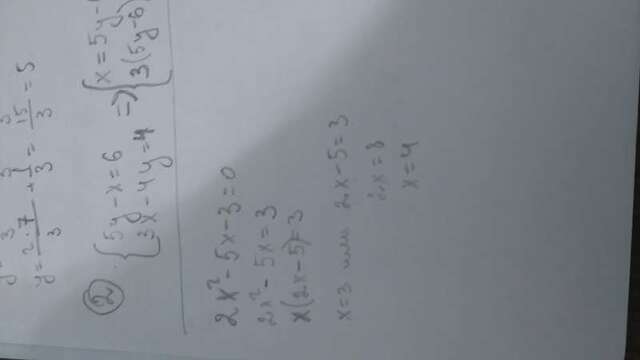 y = (2·7)/3 + 1/3 = 15/3 = 5
② {5y - x = 6 => {x = 5y -
{3x - 4y = 4 {3(5y - 6)
2x² - 5x - 3 = 0
2x² - 5x = 3
x(2x - 5) = 3
x = 3 или 2x - 5 = 3
2x = 8
x = 4